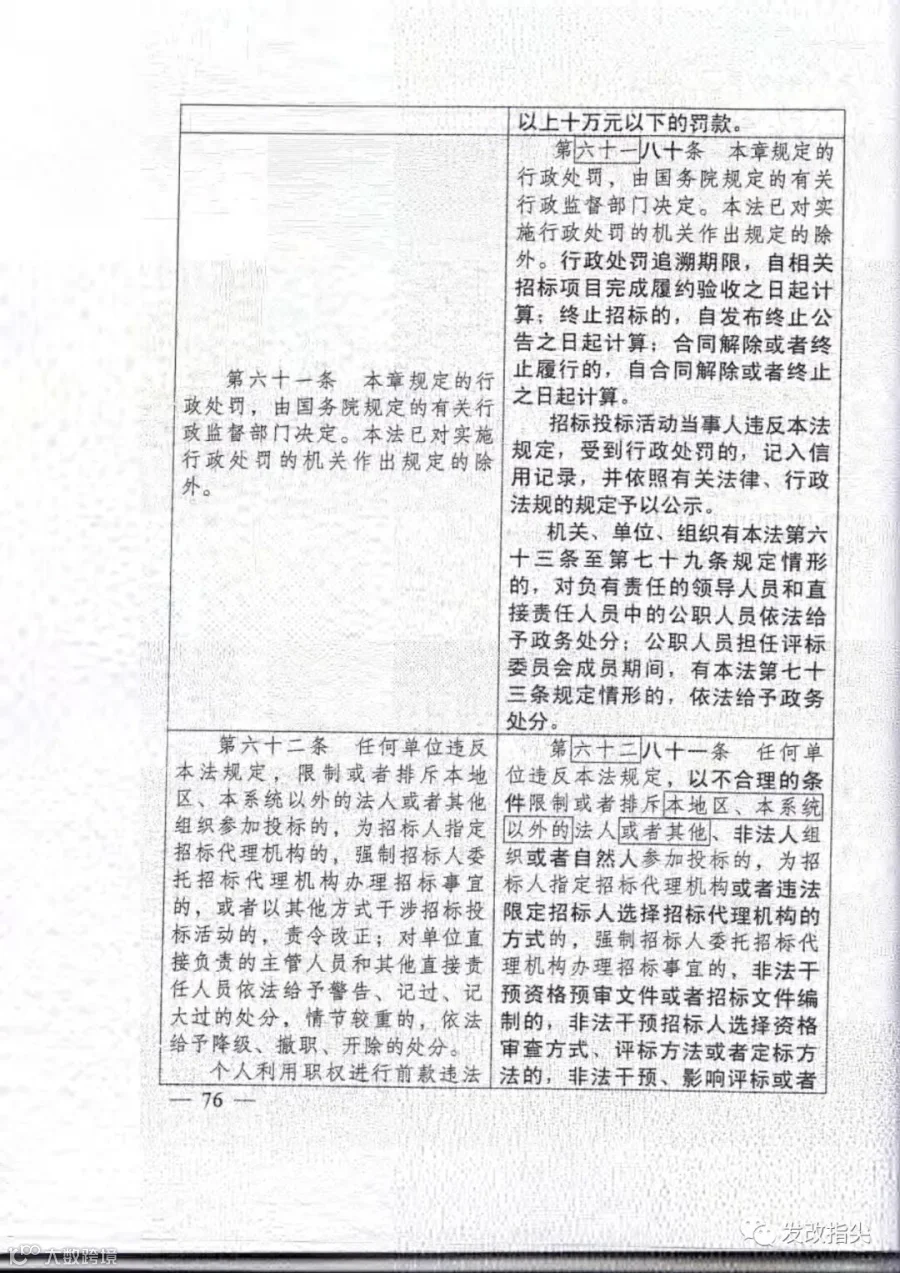 以上十万元以下的罚款。
第六十一条　本章规定的行
政处罚，由国务院规定的有关行
政监督部门决定。本法已对实施
行政处罚的机关作出规定的除
外。
第六十一八十条　本章规定的
行政处罚，由国务院规定的有关
行政监督部门决定。本法已对实
施行政处罚的机关作出规定的除
外。行政处罚追溯期限，自相关
招标项目完成履约验收之日起计
算；终止招标的，自发布终止公
告之日起计算；合同解除或者终
止履行的，自合同解除或者终止
之日起计算。
招标投标活动当事人违反本法
规定，受到行政处罚的，记入信
用记录，并依照有关法律、行政
法规的规定予以公示。
机关、单位、组织有本法第六
十三条至第七十九条规定情形
的，对负有责任的领导人员和直
接责任人员中的公职人员依法给
予政务处分；公职人员担任评标
委员会成员期间，有本法第七十
三条规定情形的，依法给予政务
处分。
第六十二条　任何单位违反
本法规定，限制或者排斥本地
区、本系统以外的法人或者其他
组织参加投标的，为招标人指定
招标代理机构的，强制招标人委
托招标代理机构办理招标事宜
的，或者以其他方式干涉招标投
标活动的，责令改正；对单位直
接负责的主管人员和其他直接责
任人员依法给予警告、记过、记
大过的处分，情节较重的，依法
给予降级、撤职、开除的处分。
个人利用职权进行前款违法
第六十二八十一条　任何单
位违反本法规定，以不合理的条
件限制或者排斥本地区、本系统
以外的法人或者其他、非法人组
织或者自然人参加投标的，为招
标人指定招标代理机构或者违法
限定招标人选择招标代理机构的
方式的，强制招标人委托招标代
理机构办理招标事宜的，非法干
预资格预审文件或者招标文件编
制的，非法干预招标人选择资格
审查方式、评标方法或者定标方
法的，非法干预、影响评标或者
— 76 —
发改指尖
大数跨境